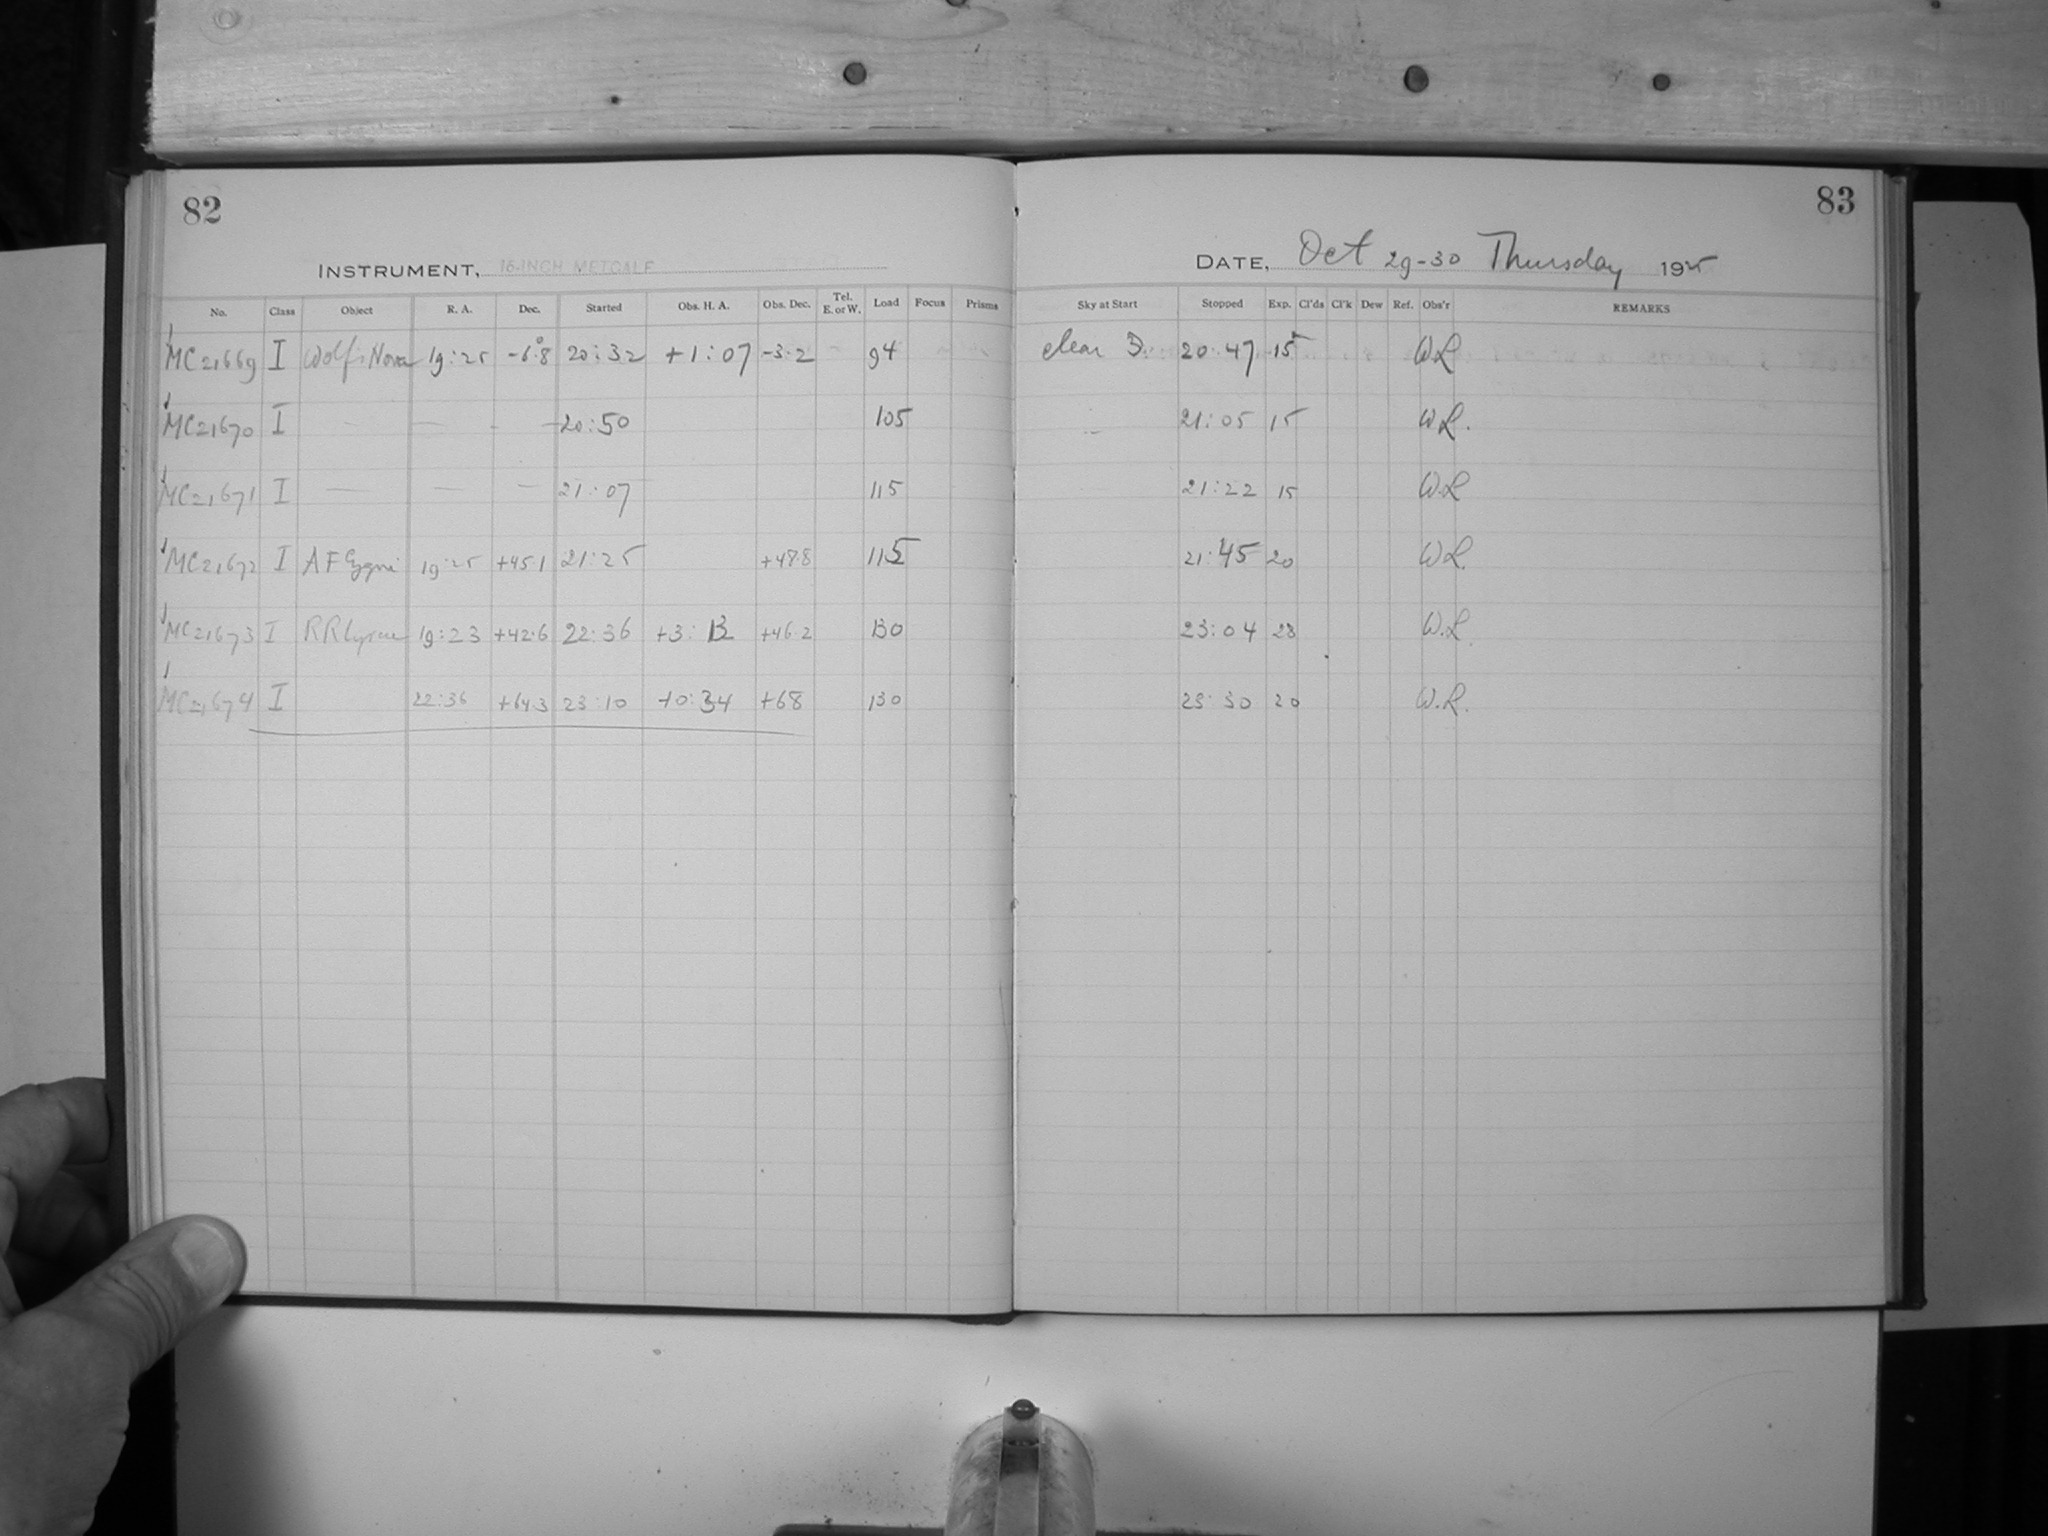 82
83
INSTRUMENT, 16-INCH METCALF
DATE, Oct 29-30 Thursday 1925
No. Class Object R. A. Dec. Started Obs. H. A. Obs. Dec. Tel. E. or W. Load Focus Prisms Sky at Start Stopped Exp. Cl'ds Cl'k Dew Ref. Obs'r REMARKS
MC21669 I Wolf's Nova 19:25 -6.8 20:32 +1:07 -3.2 94 clear 20:47 15 W.L.
MC21670 I — — - — 20:50 105 — 21:05 15 W.L.
MC21671 I — — — 21:07 115 21:22 15 W.L
MC21672 I AF Cygni 19:25 +45.1 21:25 +48.8 115 21:45 20 W.L.
MC21673 I RR Lyrae 19:23 +42.6 22:36 +3:13 +46.2 130 23:04 28 W.L.
MC21674 I 22:36 +64.3 23:10 +0:34 +68 130 23:30 20 W.L.